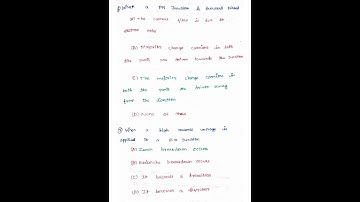 When a PN Junction is forward biased
(A) The current flow is due to
electron only
(B) Majority charge carriers in both
the parts are driven towards the Junction
(C) The majority charge carriers in
both the parts are driven away
from the Junction
(D) None of these
When a high reverse voltage is
applied to a p-n junction
(A) Zener breakdown occurs
(B) Avalanche breakdown occurs
(C) It becomes a transistor
(D) It becomes a